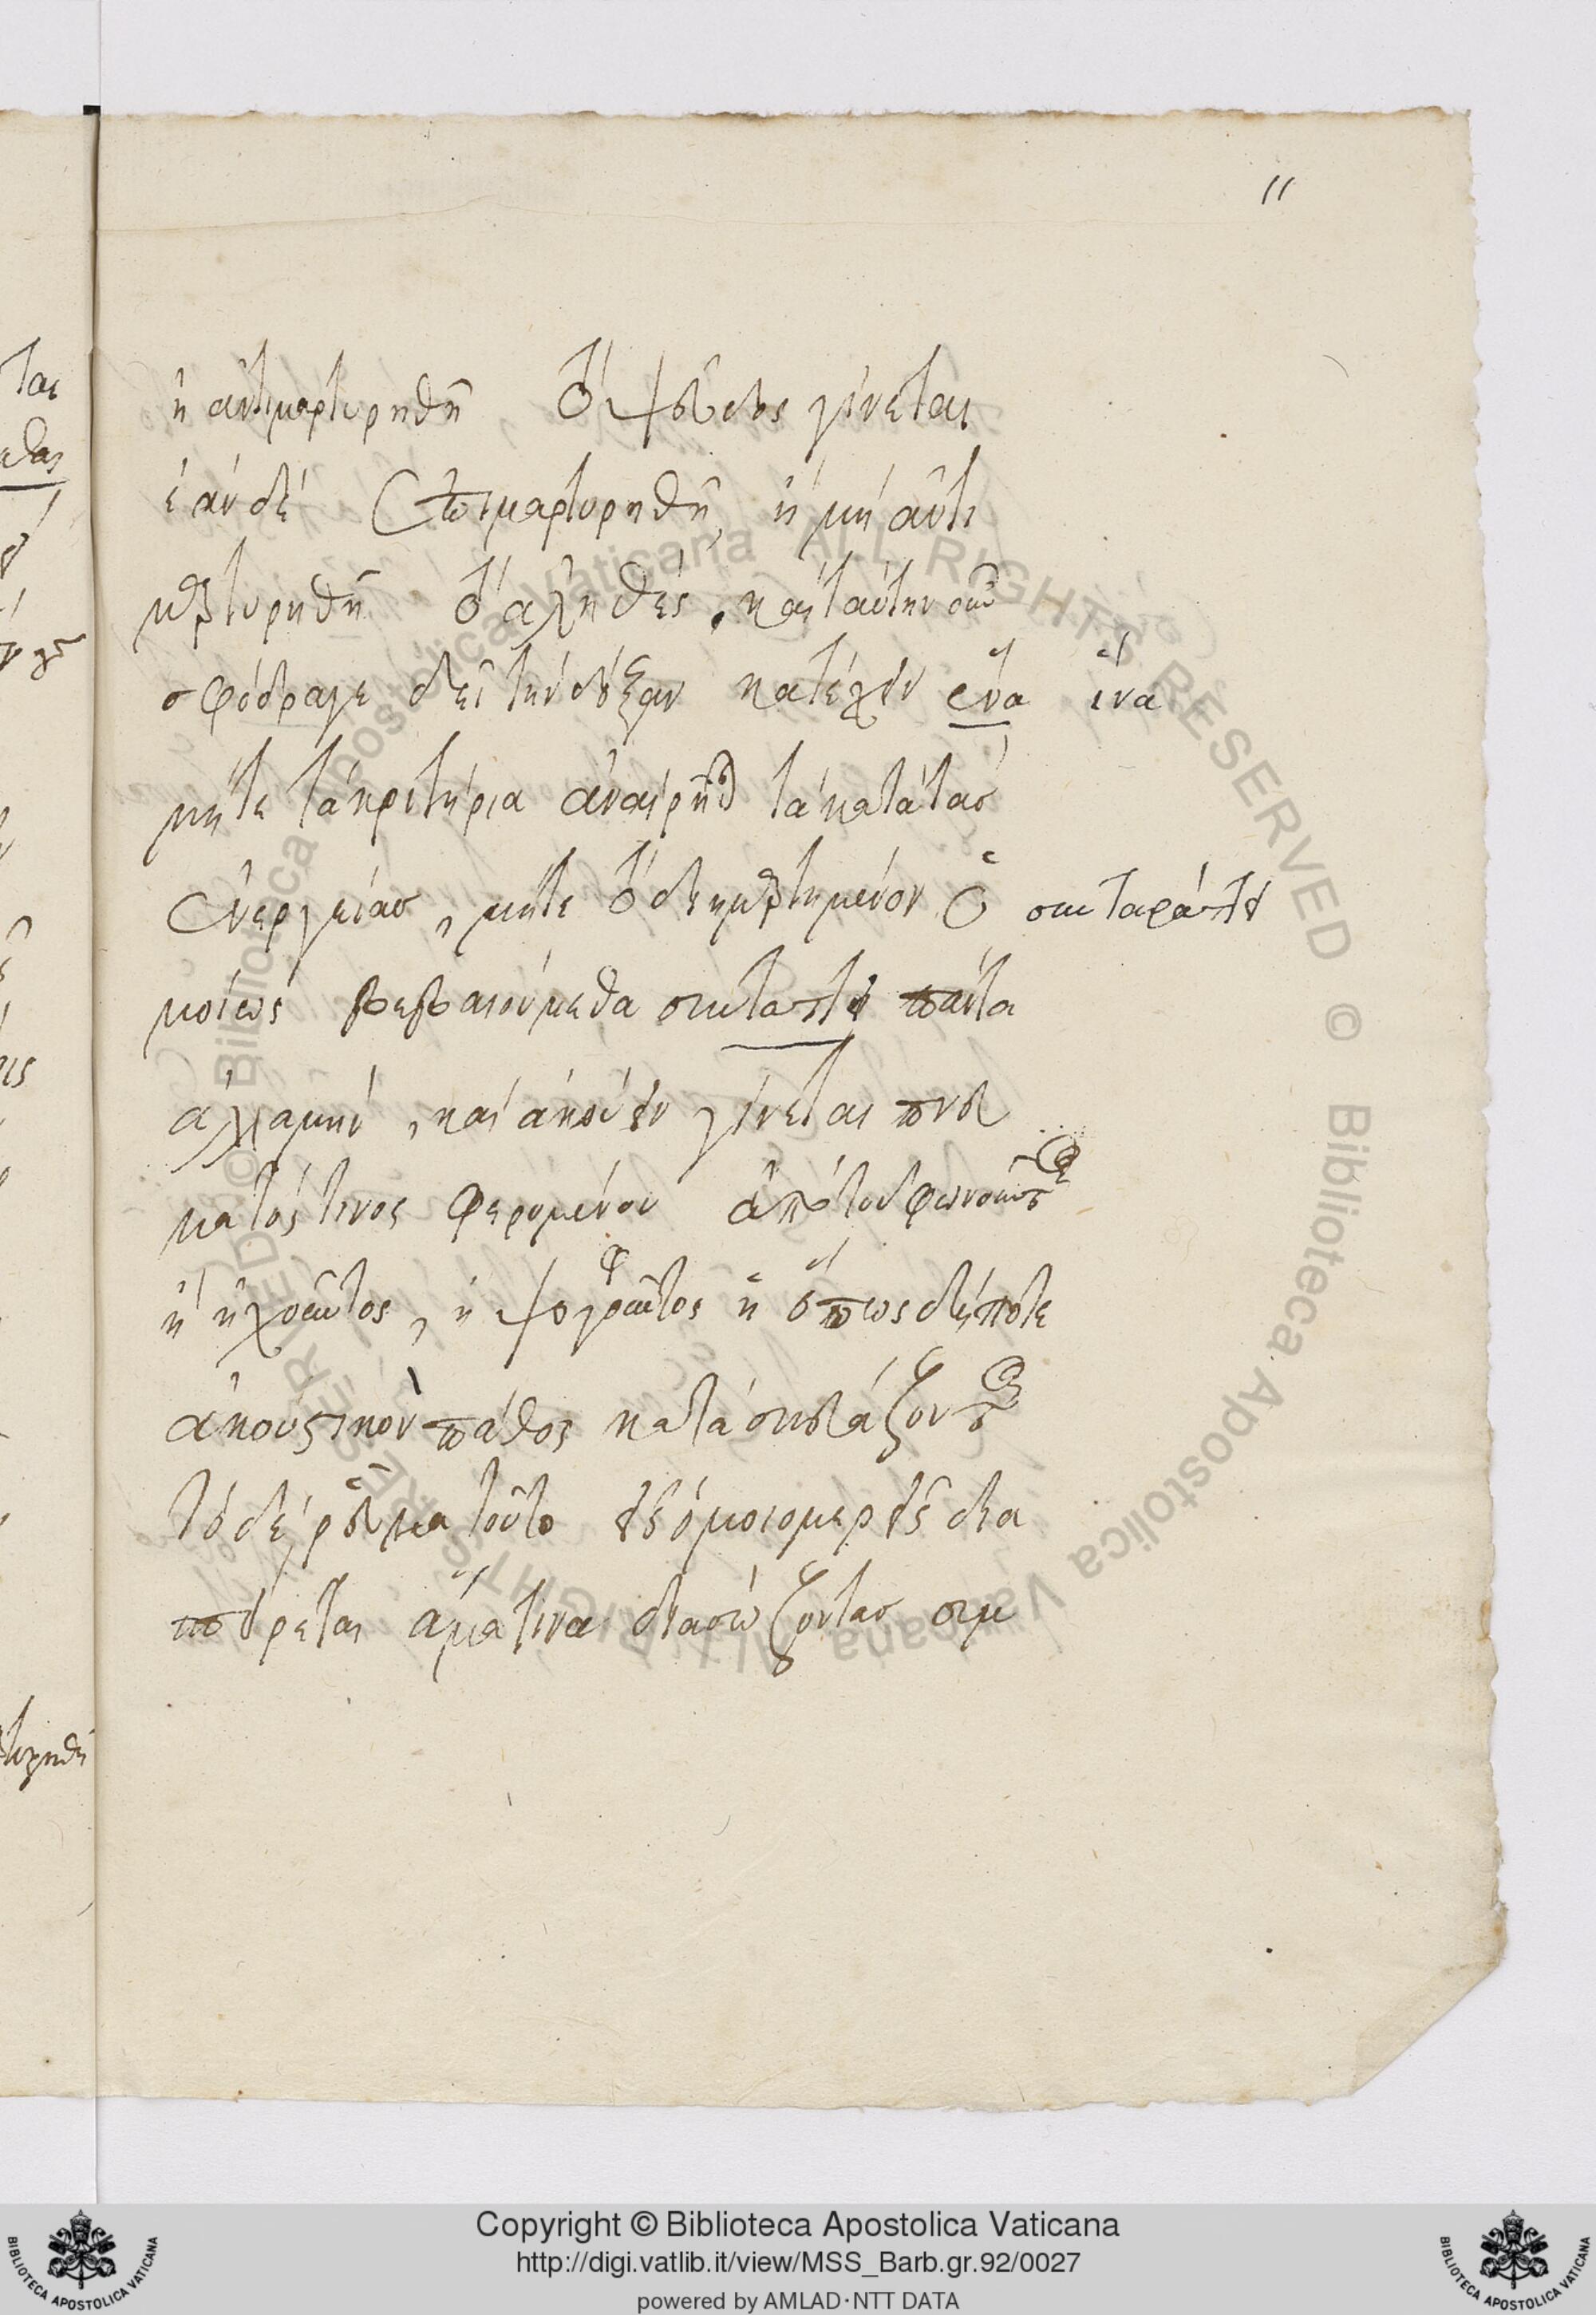 11
ἢ ἀντιμαρτυρηθῇ τὸ ψεῦδος γίνεται
ἐὰν δὲ ἐπιμαρτυρηθῇ, ἢ μὴ ἀντι
μαρτυρηθῇ τὸ ἀληθές. καὶ ταύτην οὖν
σφόδρα γε δεῖ τὴν δόξαν κατέχειν ἕνα ἵνα
μήτε τὰ κριτήρια ἀναιρῆται τὰ κατὰ τὰς
ἐνεργείας, μήτε τὸ διημαρτημένον ὁ συνταράττει
μοίως βεβαιούμεθα συνταττει πάντα
ἀλλὰ μὴν, καὶ ἀκούειν γίνεται πνεύ
ματός τινος φερομένου ἀπὸ τοῦ φωνοῦντος
ἢ ἠχοῦντος, ἢ ψοφοῦντος ἢ ὅπως δήποτε
ἀκουστικὸν πάθος κατασκευάζοντος
τὸ δὲ ῥεῦμα τοῦτο εἰς ὁμοιομερεῖς δια
σπείρεται ἅμα τινα διασώζοντας συμ
Copyright © Biblioteca Apostolica Vaticana
http://digi.vatlib.it/view/MSS_Barb.gr.92/0027
powered by AMLAD·NTT DATA